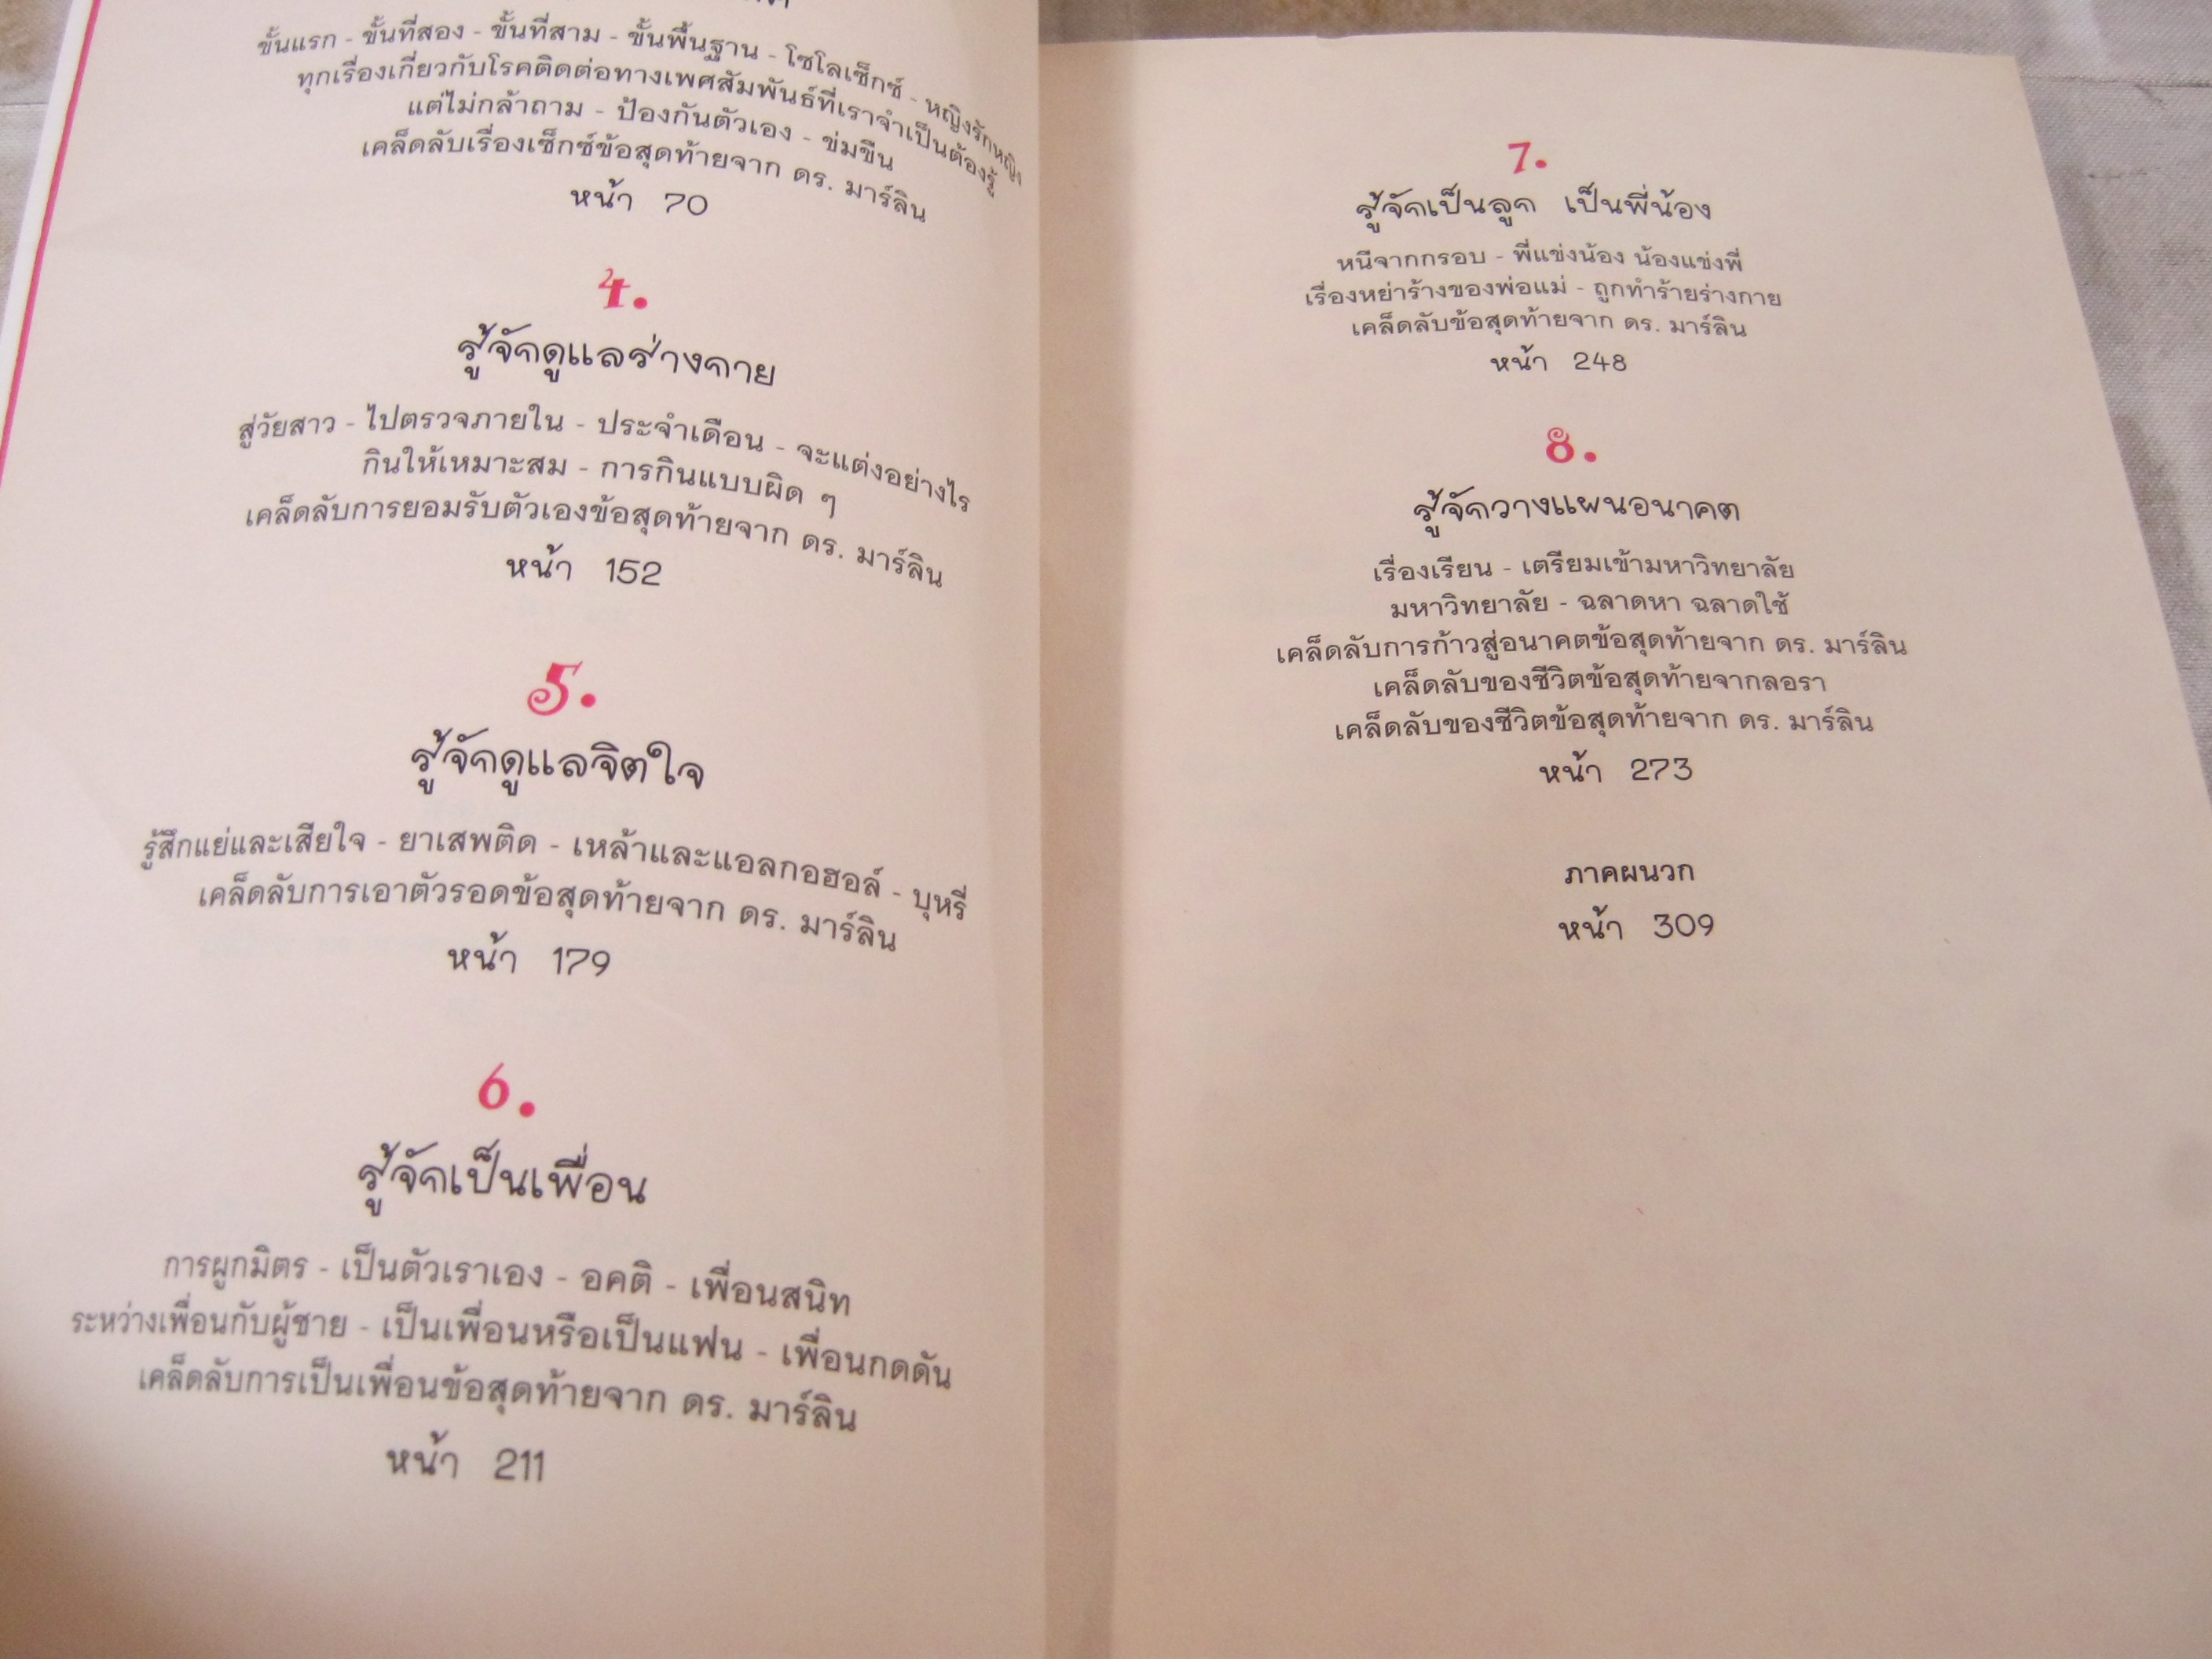 ขั้นแรก - ขั้นที่สอง - ขั้นที่สาม - ขั้นพื้นฐาน - โซโลเซ็กซ์ - หญิงรักหญิง
ทุกเรื่องเกี่ยวกับโรคติดต่อทางเพศสัมพันธ์ที่เราจำเป็นต้องรู้
แต่ไม่กล้าถาม - ป้องกันตัวเอง - ข่มขืน
เคล็ดลับเรื่องเซ็กซ์ข้อสุดท้ายจาก ดร. มาร์ลิน
หน้า 70
4.
รู้จักดูแลร่างกาย
สู่วัยสาว - ไปตรวจภายใน - ประจำเดือน - จะแต่งอย่างไร
กินให้เหมาะสม - การกินแบบผิด ๆ
เคล็ดลับการยอมรับตัวเองข้อสุดท้ายจาก ดร. มาร์ลิน
หน้า 152
5.
รู้จักดูแลจิตใจ
รู้สึกแย่และเสียใจ - ยาเสพติด - เหล้าและแอลกอฮอล์ - บุหรี่
เคล็ดลับการเอาตัวรอดข้อสุดท้ายจาก ดร. มาร์ลิน
หน้า 179
6.
รู้จักเป็นเพื่อน
การผูกมิตร - เป็นตัวเราเอง - อคติ - เพื่อนสนิท
ระหว่างเพื่อนกับผู้ชาย - เป็นเพื่อนหรือเป็นแฟน - เพื่อนกดดัน
เคล็ดลับการเป็นเพื่อนข้อสุดท้ายจาก ดร. มาร์ลิน
หน้า 211
7.
รู้จักเป็นลูก เป็นพี่น้อง
หนีจากกรอบ - พี่แข่งน้อง น้องแข่งพี่
เรื่องหย่าร้างของพ่อแม่ - ถูกทำร้ายร่างกาย
เคล็ดลับข้อสุดท้ายจาก ดร. มาร์ลิน
หน้า 248
8.
รู้จักวางแผนอนาคต
เรื่องเรียน - เตรียมเข้ามหาวิทยาลัย
มหาวิทยาลัย - ฉลาดหา ฉลาดใช้
เคล็ดลับการก้าวสู่อนาคตข้อสุดท้ายจาก ดร. มาร์ลิน
เคล็ดลับของชีวิตข้อสุดท้ายจากลอรา
เคล็ดลับของชีวิตข้อสุดท้ายจาก ดร. มาร์ลิน
หน้า 273
ภาคผนวก
หน้า 309